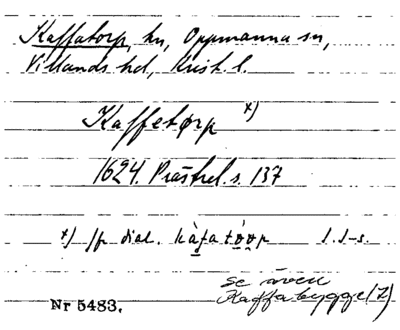 Kaffatorp, hn, Oppmanna sn,
Villands hd, Krist. l.
Kaffetorp x)
1624. Prästrel. s. 137
x) jfr dial. kàfatò̤o̤p I. I-s.
se även
Kaffabygge (Z)
Nr 5483.